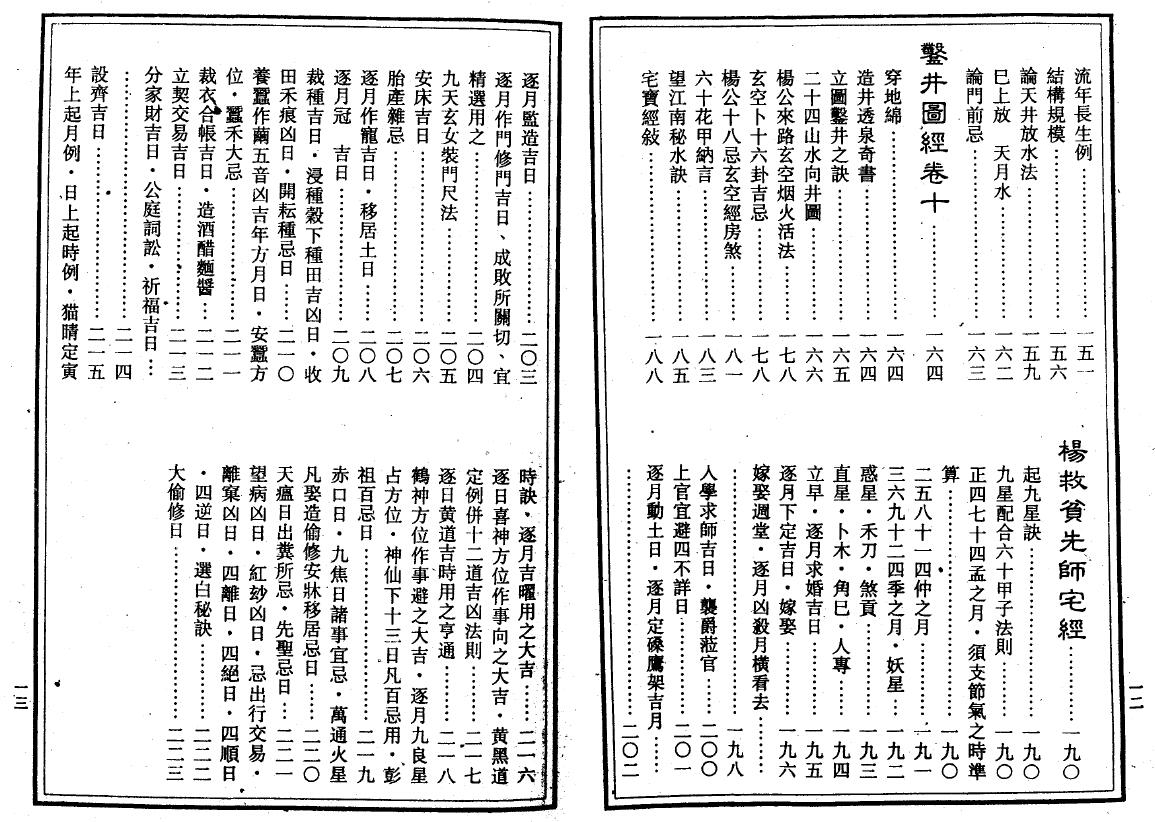 流年長生例……一五一
結構規模……一五六
論天井放水法……一五九
巳上放　天月水……一六二
論門前忌……一六三
鑿井圖經卷十……一六四
穿地綿……一六四
造井透泉奇書……一六四
立圖鑿井之訣……一六五
二十四山水向井圖……一六六
楊公來路玄空烟火活法……一七八
玄空卜十六卦吉忌……一七八
楊公十八忌玄空經房煞……一八一
六十花甲納言……一八三
望江南秘水訣……一八五
宅寶經敍……一八八
楊救貧先師宅經……一九〇
起九星訣……一九〇
九星配合六十甲子法則……一九〇
正四七十四孟之月・須支節氣之時準
算……一九〇
二五八十一四仲之月……一九一
三六九十二四季之月・妖星……一九二
惑星・禾刀・煞貢……一九三
直星・卜木・角巳・人專……一九四
立早・逐月求婚吉日……一九五
逐月下定吉日・嫁娶……一九六
嫁娶週堂・逐月凶殺月橫看去……
……一九八
人學求師吉日・襲爵蒞官……二〇〇
上官宜避四不詳日……二〇一
逐月動土日・逐月定磉鷹架吉月……
……二〇二
一二
逐月監造吉日……二〇三
逐月作門修門吉日、成敗所關切、宜
精選用之……二〇四
九天玄女裝門尺法……二〇五
安床吉日……二〇六
胎產雜忌……二〇七
逐月作竉吉日・移居土日……二〇八
逐月冠　吉日……二〇九
裁種吉日・浸種穀下種田吉凶日・收
田禾痕凶日・開耘種忌日……二一〇
養蠶作繭五音凶吉年方月日・安蠶方
位・蠶禾大忌……二一一
裁衣合帳吉日・造酒醋麵醬……二一二
立契交易吉日……二一三
分家財吉日・公庭詞訟・祈福吉日…
……二一四
設齊吉日……二一五
年上起月例・日上起時例・猫睛定寅
時訣・逐月吉曜用之大吉……二一六
逐日喜神方位作事向之大吉・黃黑道
定例併十二道吉凶法則……二一七
逐日黃道吉時用之亨通……二一八
鶴神方位作事避之大吉・逐月九良星
占方位・神仙下十三日凡百忌用・彭
祖百忌日……二一九
赤口日・九焦日諸事宜忌・萬通火星
凡娶造偷修安牀移居忌日……二二〇
天瘟日出糞所忌・先聖忌日……二二一
望病凶日・紅紗凶日・忌出行交易・
離窠凶日・四離日・四絕日・四順日
・四逆日・選白秘訣……二二二
大偷修日……二二三
一三